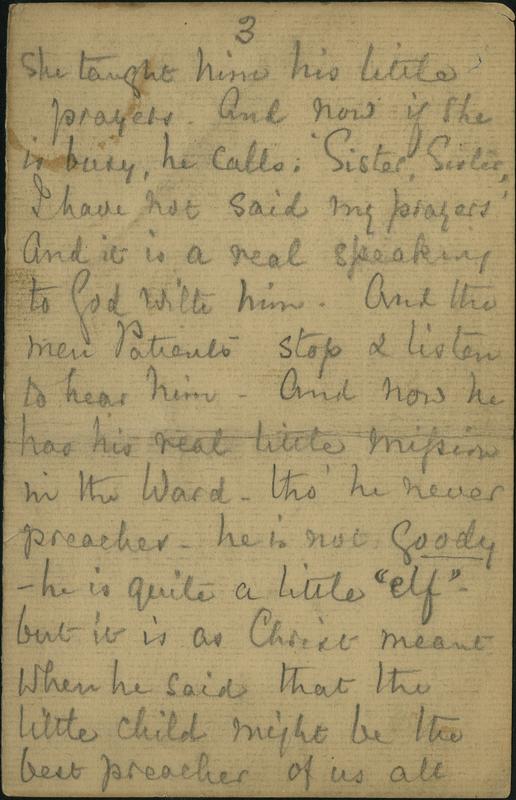 3
She taught him his little
prayers. And now if she
is busy, he calls: 'Sister, Sister,
I have not said my prayers'
And it is a real speaking
to God with him. And the
men Patients stop & listen
to hear him - And now he
has his real little mission
in the Ward - tho' he never
preaches - he is not Goody
- he is quite a little "elf" -
but it is as Christ meant
when he said that the
little child might be the
best preacher of us all